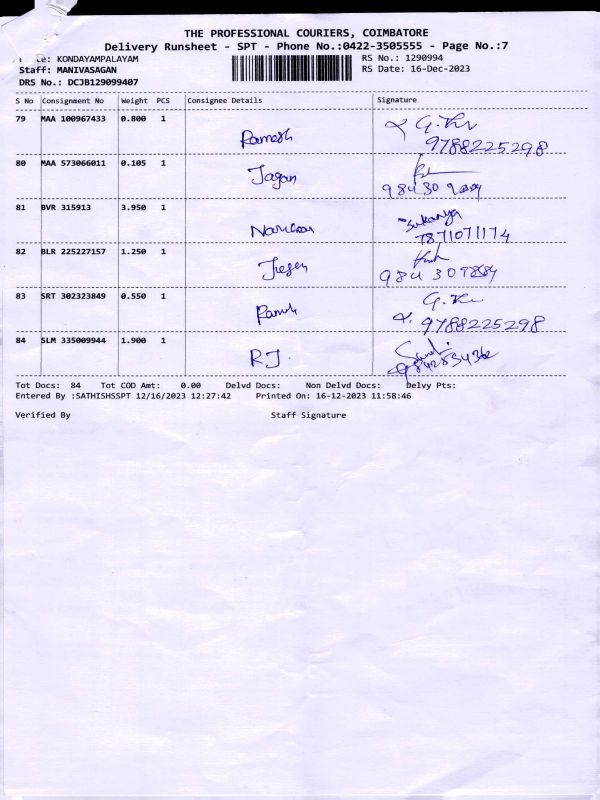 THE PROFESSIONAL COURIERS, COIMBATORE
Delivery Runsheet - SPT - Phone No.:0422-3505555 - Page No.:7
KONDAYAMPALAYAM
RS No.: 1290994
Staff: MANIVASAGAN
RS Date: 16-Dec-2023
DRS No.: DCJB129099407
S No Consignment No Weight PCS Consignee Details Signature
79 MAA 100967433 0.800 1 Ramesh G.
9788225298
80 MAA 573066011 0.105 1 Jagan
81 BVR 315913 3.950 1 Sukanya
7871071174
82 BLR 225227157 1.250 1
83 SRT 302323849 0.550 1 G.
9788225298
84 SLM 335009944 1.900 1 RJ.
Tot Docs: 84 Tot COD Amt: 0.00 Delvd Docs: Non Delvd Docs: Delvy Pts:
Entered By :SATHISHSSPT 12/16/2023 12:27:42 Printed On: 16-12-2023 11:58:46
Verified By Staff Signature